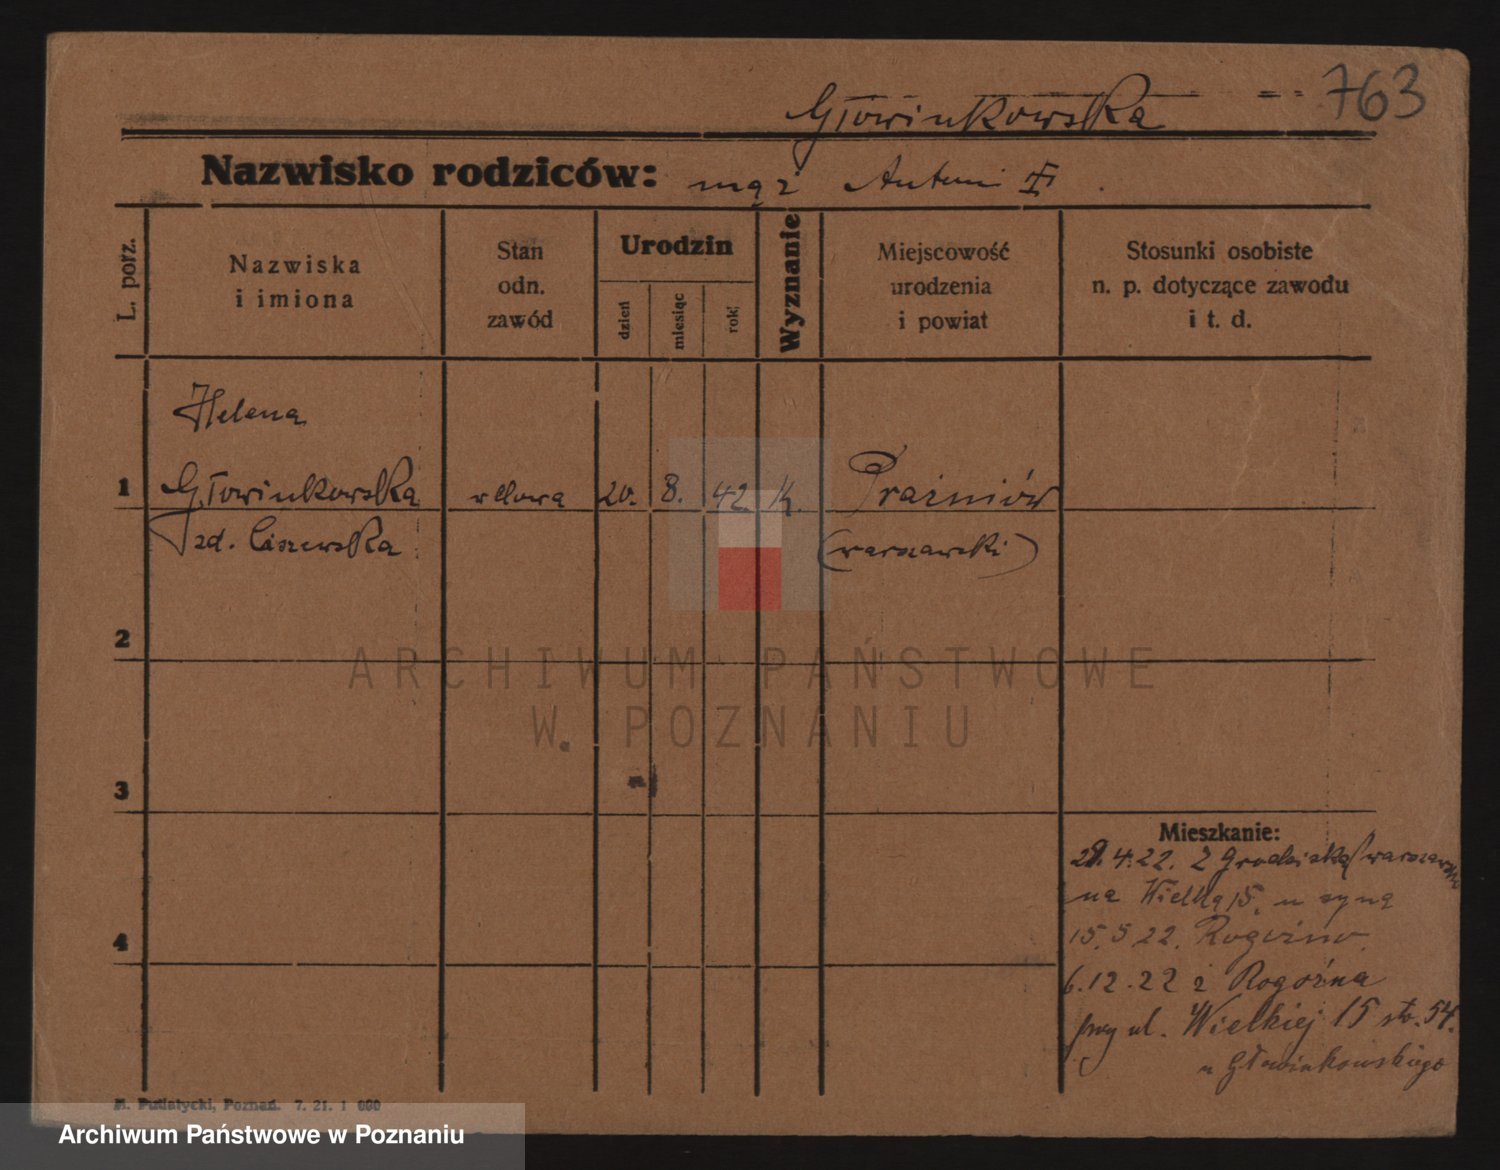 763
Głowinkowska
Nazwisko rodziców: mąż Antoni
L. porz.
Nazwiska
i imiona
Stan
odn.
zawód
Urodzin
dzień
miesiąc
rok
Wyznanie
Miejscowość
urodzenia
i powiat
Stosunki osobiste
n. p. dotyczące zawodu
i t. d.
Helena
1 Głowinkowska wdowa 20. 8. 42. k. Prażmów
zd. Ciszewska (warszawski)
2
3
4
Mieszkanie:
4.22. Z Grodziska (warszawski
na Wielką 15, u syna
15.5 22. Rogoźno
6.12.22 z Rogoźna
przy ul. Wielkiej 15 54.
u Głowinkowskiego
Putiatycki, Poznań. 7. 21. 1 000
ARCHIWUM PAŃSTWOWE
W POZNANIU
Archiwum Państwowe w Poznaniu